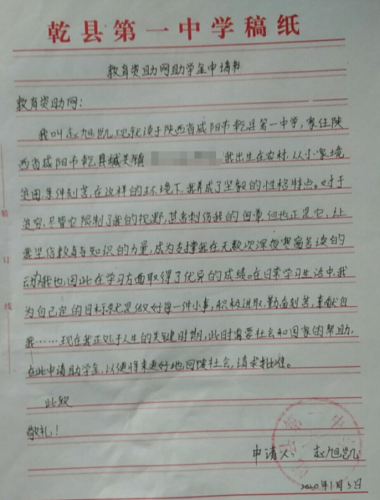 乾县第一中学稿纸
教育资助网助学金申请书
教育资助网:
我叫赵旭凯现就读于陕西省咸阳市乾县第一中学,家住陕
西省咸阳市乾县城关镇 我出生在农村,从小家境
贫困条件刻苦,在这样的环境下,我养成了坚毅的性格特点。对于
贫穷,尽管它限制了我的视野,甚至刺伤我的自尊但也正是它,让
我坚信教育与知识的力量,成为支撑我在无数次深夜寒窗苦读的
动力我也因此在学习方面取得了优异的成绩。在日常学习生活中我
为自己定的目标就是做好每一件小事,积极进取,勤奋刻苦,奉献自
我……现在我正处于人生的关键时期,此时需要社会和国家的帮助,
在此申请助学金,以便将来更好地回馈社会,请求批准。
此致
敬礼!
申请人: 赵旭凯
2020年1月5日
装
订
线